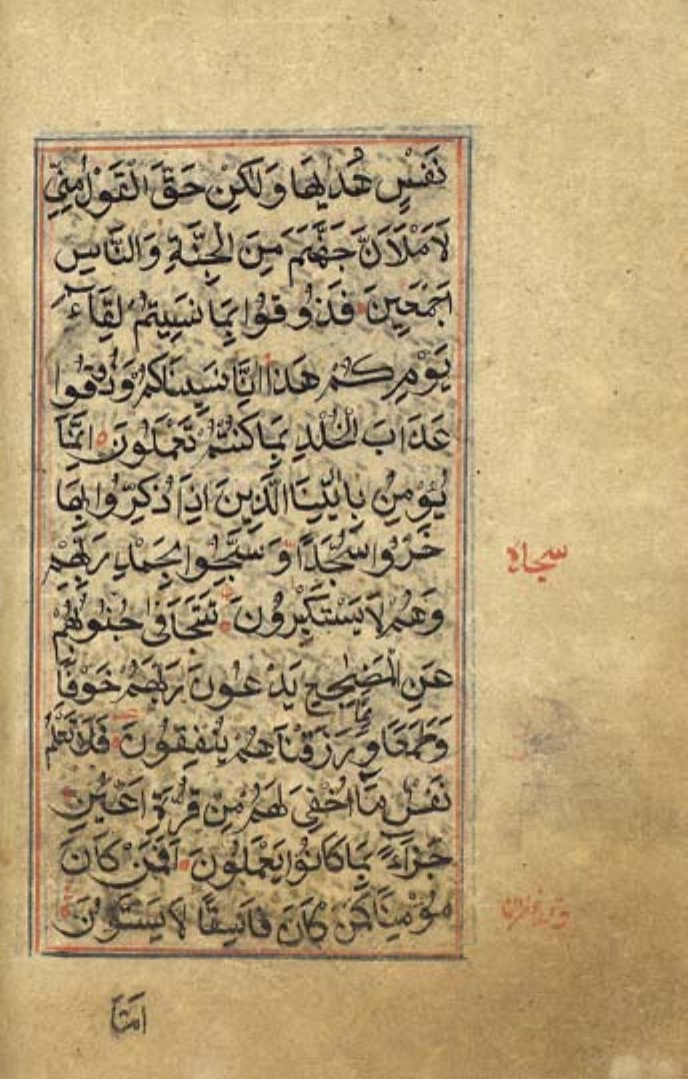 نَفْسٍ هُدٰيهَا وَلٰكِنْ حَقَّ الْقَوْلُ مِنِّي
لَاَمْلَاَنَّ جَهَنَّمَ مِنَ الْجِنَّةِ وَالنَّاسِ
اَجْمَعِينَ فَذُوقُوا بِمَا نَسِيتُمْ لِقَآءَ
يَوْمِكُمْ هٰذَا اِنَّا نَسِينَاكُمْ وَذُوقُوا
عَذَابَ الْخُلْدِ بِمَا كُنْتُمْ تَعْمَلُونَ اِنَّمَا
يُؤْمِنُ بِاٰيٰتِنَا الَّذِينَ اِذَا ذُكِّرُوا بِهَا
خَرُّوا سُجَّدًا وَسَبَّحُوا بِحَمْدِ رَبِّهِمْ
سجده
وَهُمْ لَا يَسْتَكْبِرُونَ تَتَجَافٰى جُنُوبُهُمْ
عَنِ الْمَضَاجِعِ يَدْعُونَ رَبَّهُمْ خَوْفًا
وَطَمَعًا وَمِمَّا رَزَقْنَاهُمْ يُنْفِقُونَ فَلَا تَعْلَمُ
نَفْسٌ مَّا اُخْفِيَ لَهُمْ مِنْ قُرَّةِ اَعْيُنٍ
جَزَآءً بِمَا كَانُوا يَعْمَلُونَ اَفَمَنْ كَانَ
مُؤْمِنًا كَمَنْ كَانَ فَاسِقًا لَا يَسْتَوُونَ
اَمَّا